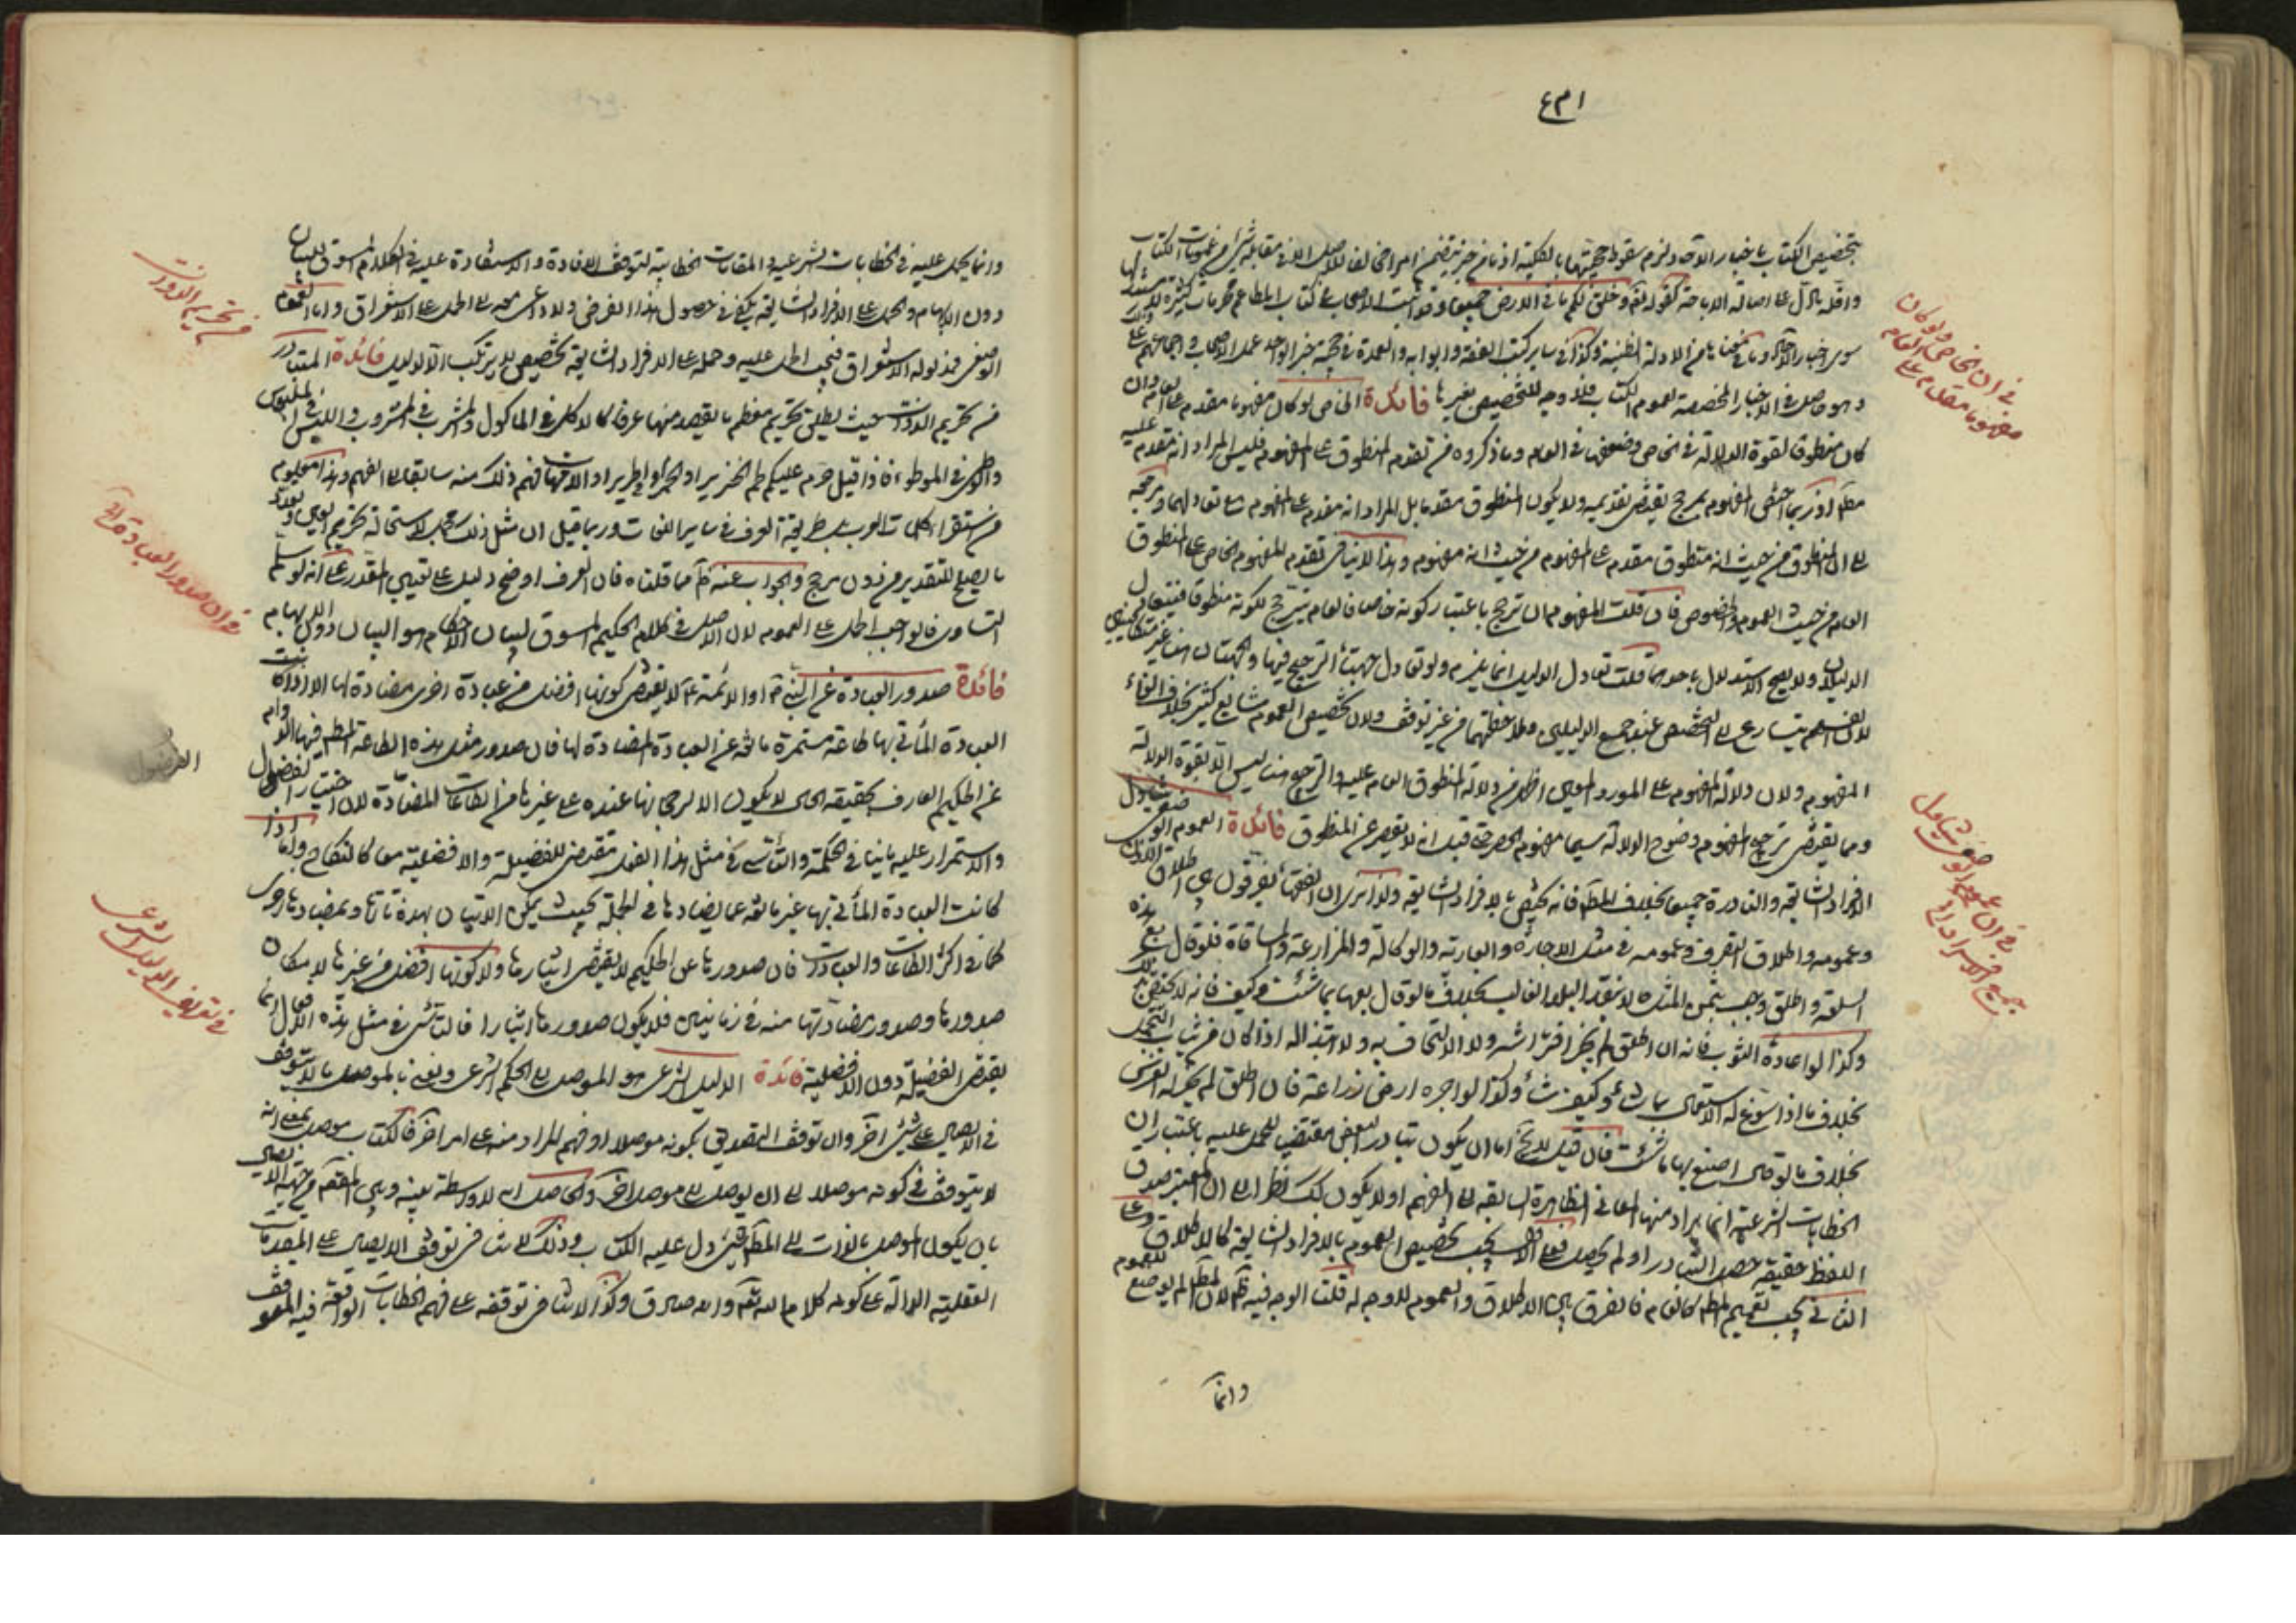 بتخصيص الكتاب باخبار الآحاد لزم سقوط حجيتها بالكلية اذ ما من خبر يتضمن امرا مخالفا للاصل الا في مقابله شيء من عمومات الكتاب
واقله ما دل على اصالة الاباحة كقوله تعالى وخلق لكم ما في الارض جميعا
سوى اخبار الآحاد وما في معناها من الادلة الظنية وكذا في ساير كتب الفقه وابوابه والعمدة في حجية خبر الواحد عمل الاصحاب واجماعهم على
وهو حاصل في الاخبار المخصصة لعموم الكتاب فلا وجه للتخصيص بغيرها فائدة الخاص لو كان مفهوما مقدم على العام وان
كان منطوقا لقوة الدلالة في الخاص وضعفها في العام وما ذكروه من تقدم المنطوق على المفهوم فليس المراد انه مقدم عليه
مطلقا اذ ربما اختص المفهوم بمرجح يقتضي تقديمه ولا يكون المنطوق مقدما بل المراد انه مقدم على المفهوم مع تعادلهما ومرجعه
الى ان المنطوق من حيث انه منطوق مقدم على المفهوم من حيث انه مفهوم وهذا لا ينافي تقدم المفهوم الخاص على المنطوق
العام من حيث العموم والخصوص فان قلت المفهوم ان ترجح باعتبار كونه خاصا فالعام يترجح لكونه منطوقا فيتعادل
الدليلان ولا يصح الاستدلال باحدهما قلت تعادل الدليلين انما يلزم ولو تعادل جهتا الترجيح فيهما والجهتان هنا غير متكافئتين
لان الفهم يتسارع الى التخصيص عند جمع الدليلين وملاحظتهما من غير توقف ولان تخصيص العموم شايع كثير بخلاف الغاء
المفهوم ولان دلالة المفهوم على المورد المعين اظهر من دلالة المنطوق العام عليه والترجيح هنا ليس الا بقوة الدلالة
ومما يقتضي ترجيح المفهوم وضوح الدلالة سيما مفهوم الحصر حتى قيل انه لا يقصر عن المنطوق فائدة العموم الوضعي يتناول
الافراد الشايعة والنادرة جميعا بخلاف المطلق فانه يختص بالافراد الشايعة ولذا ترى ان الفقهاء يفرقون بين اطلاق الاذن
وعمومه واطلاق التصرف وعمومه في مثل الاجارة والعارية والوكالة والمزارعة والمساقاة فلو قال بع هذه
السلعة واطلق وجب بثمن المثل بنقد البلد الغالب بخلاف ما لو قال بعها بما شئت وكيف
وكذا لو اعاره الثوب فانه ان اطلق لم يجز افتراشه ولا الالتحاف به ولا ابتذاله اذا كان من ثياب التجمل
بخلاف ما اذا سوغ له الاستعمال بما شاء وكيف شاء وكذا لو آجره ارض زراعة فان اطلق لم يجز له الغرس
بخلاف ما لو قال اصنع بها ما شئت فان قيل اما ان يكون تبادر البعض مقتضيا للحمل عليه باعتبار ان
الخطابات الشرعية انما يراد منها المعاني الظاهرة السابقة الى الفهم او لا يكون كذلك نظرا الى ان المعتبر صدق
اللفظ حقيقة حصل التبادر او لم يحصل فعلى الاول يجب تخصيص العموم بالافراد الشايعة كالاطلاق وعلى
الثاني يجب تعميم المطلق كالعام فالفرق بين الاطلاق والعموم لا وجه له قلت الوجه فيه ظاهر لان المطلق لم يوضع للعموم
وانما
في ان الخاص ولو كان
مفهوما مقدم على العام
في ان عموم الوضعي يتناول
جميع الافراد
وانما يحمل عليه في الخطابات الشرعية والمقامات الخطابية لتوقف الافادة والاستفادة عليه في الكلام المسوق للبيان
دون الابهام والحمل على الافراد الشايعة يكفي في حصول هذا الغرض ولا داعي معه الى الحمل على الاستغراق واما العموم
الوضعي فمدلوله الاستغراق فيجب الحمل عليه وحمله على الافراد الشايعة تخصيص لا يرتكب الا لدليل فائدة المتبادر
من تحريم الذوات حيث يطلق تحريم معظم ما يقصد منها عرفا كالاكل في الماكول والشرب في المشروب واللبس في الملبوس
والوطي في الموطوء فاذا قيل حرم عليكم لحم الخنزير او الخمر او الحرير او الامهات فهم ذلك منه سابقا الى الفهم وهذا معلوم
من استقراء كلمات العرب بل طريقة العرف في ساير اللغات وربما قيل ان مثل ذلك مجمل لاستحالة تحريم العين وتعدد
ما يصلح للتقدير من دون مرجح والجواب عنه ظاهر مما قلناه فان العرف اوضح دليل على تعيين المقدر على انه لو سلم
التساوي فالواجب الحمل على العموم لان الاصل في كلام الحكيم المسوق لبيان الاحكام هو البيان دون الابهام
فائدة صدور العبادة عن النبي ص او الائمة ع لا يقتضي كونها افضل من عبادة اخرى مضادة لها الا اذا كانت
العبادة المأتي بها طاعة مستمرة مانعة عن العبادة المضادة لها فان صدور مثل هذه الطاعة المطلوب فيها الدوام
عن الحكيم العارف بحقيقة الحال لا يكون الا لرجحانها عنده على غيرها من الطاعات المضادة لان اختيار المفضول
والاستمرار عليه ينافي الحكمة والتاسي في مثل هذا الفعل مقتض للفضيلة والافضلية معا كالنكاح واما اذا
كانت العبادة المأتي بها غير مانعة عما يضادها في الجملة بحيث يمكن الاتيان بهذه تارة وبمضادها اخرى
كما في اكثر الطاعات والعبادات فان صدورها عن الحكيم لا يقتضي ايثارها ولا كونها افضل من غيرها لامكان
صدورها وصدور مضادتها منه في زمانين فلا يكون صدورها ايثارا فالتاسي في مثل هذه الافعال انما
يقتضي الفضيلة دون الافضلية فائدة الدليل الشرعي هو الموصل الى الحكم الشرعي ونعني بالموصل ما لا يتوقف
في الايصال على شيء آخر وان توقف التصديق بكونه موصلا او فهم المراد منه على امر آخر فالكتاب موصل بمعنى انه
لا يتوقف في كونه موصلا الى ان يوصل الى موصل آخر والحاصل انه لا واسطة بينه وبين الحكم من جهة الايصال
بان يكون الموصل بالذات الى المطلوب شيء دل عليه الكتاب وذلك لا ينافي توقف الايصال على المقدمات
العقلية الدالة على كونه كلاما لله تعالى وانه صادق وكذا لا ينافي توقفه على فهم الخطابات الواقعة فيه الموقوف
في تحريم الذوات
في ان صدور العبادة
في تعريف الدليل الشرعي